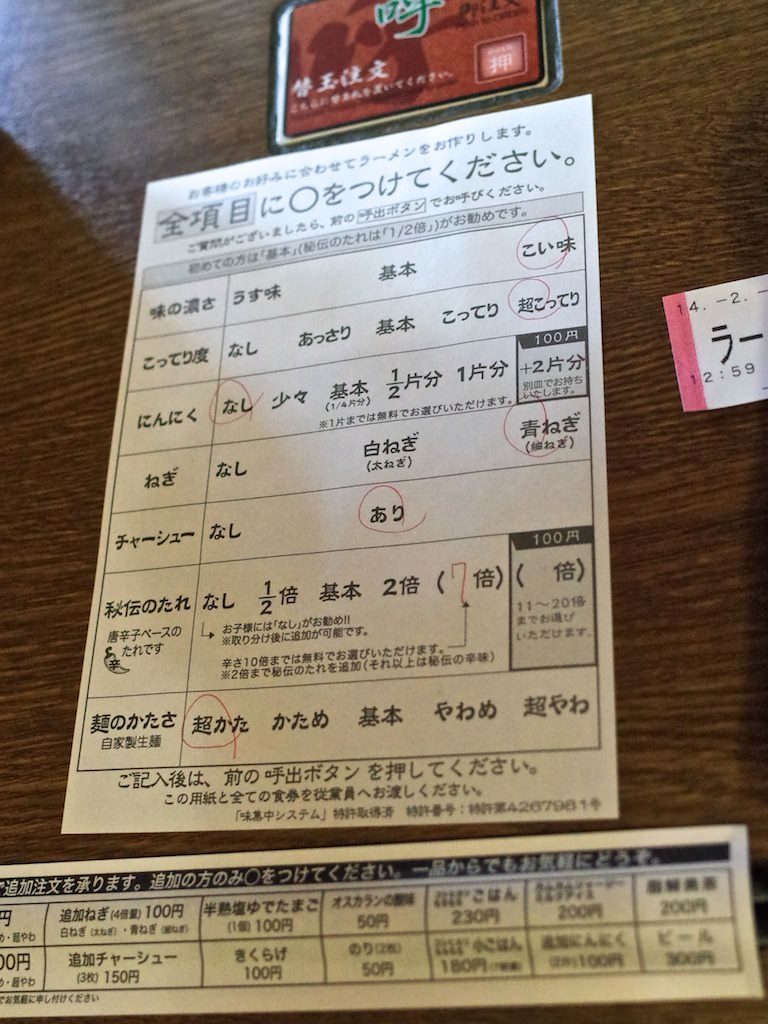 呼
替玉注文
押
お客様のお好みに合わせてラーメンをお作りします。
全項目に〇をつけてください。
ご質問がございましたら、前の呼出ボタンでお呼びください。
初めての方は「基本」(秘伝のたれは「1/2倍」)がお勧めです。
味の濃さ うす味 基本 こい味
こってり度 なし あっさり 基本 こってり 超こってり
にんにく なし 少々 基本 1/2片分 1片分 +2片分
(1/4片分)
100円
別皿でお持ち
いたします。
※1片までは無料でお選びいただけます。
ねぎ なし 白ねぎ 青ねぎ
(太ねぎ) (細ねぎ)
チャーシュー なし あり
秘伝のたれ なし 1/2倍 基本 2倍 (7倍) ( 倍)
唐辛子ベースの
たれです
辛
100円
11〜20倍
までお選び
いただけます。
お子様には「なし」がお勧め!!
※取り分け後に追加が可能です。
辛さ10倍までは無料でお選びいただけます。
※2倍まで秘伝のたれを追加(それ以上は秘伝の辛味)
麺のかたさ 超かた かため 基本 やわめ 超やわ
自家製生麺
ご記入後は、前の呼出ボタンを押してください。
この用紙と全ての食券を従業員へお渡しください。
「味集中システム」特許取得済 特許番号:特許第4267981号
14.-2.-
ラー
12:59
で追加注文を承ります。追加の方のみ〇をつけてください。一品からでもお気軽にどうぞ。
円 追加ねぎ(4倍量)100円 半熟塩ゆでたまご オスカランの酸味 ごはん 200円 200円
め・超やわ 白ねぎ(太ねぎ)・青ねぎ(細ねぎ) (1個)100円 50円 230円
00円 追加チャーシュー きくらげ のり(2枚) 小ごはん 追加にんにく ビール
め・超やわ (3枚)150円 100円 50円 180円 100円 300円
でお気軽に申し付けください